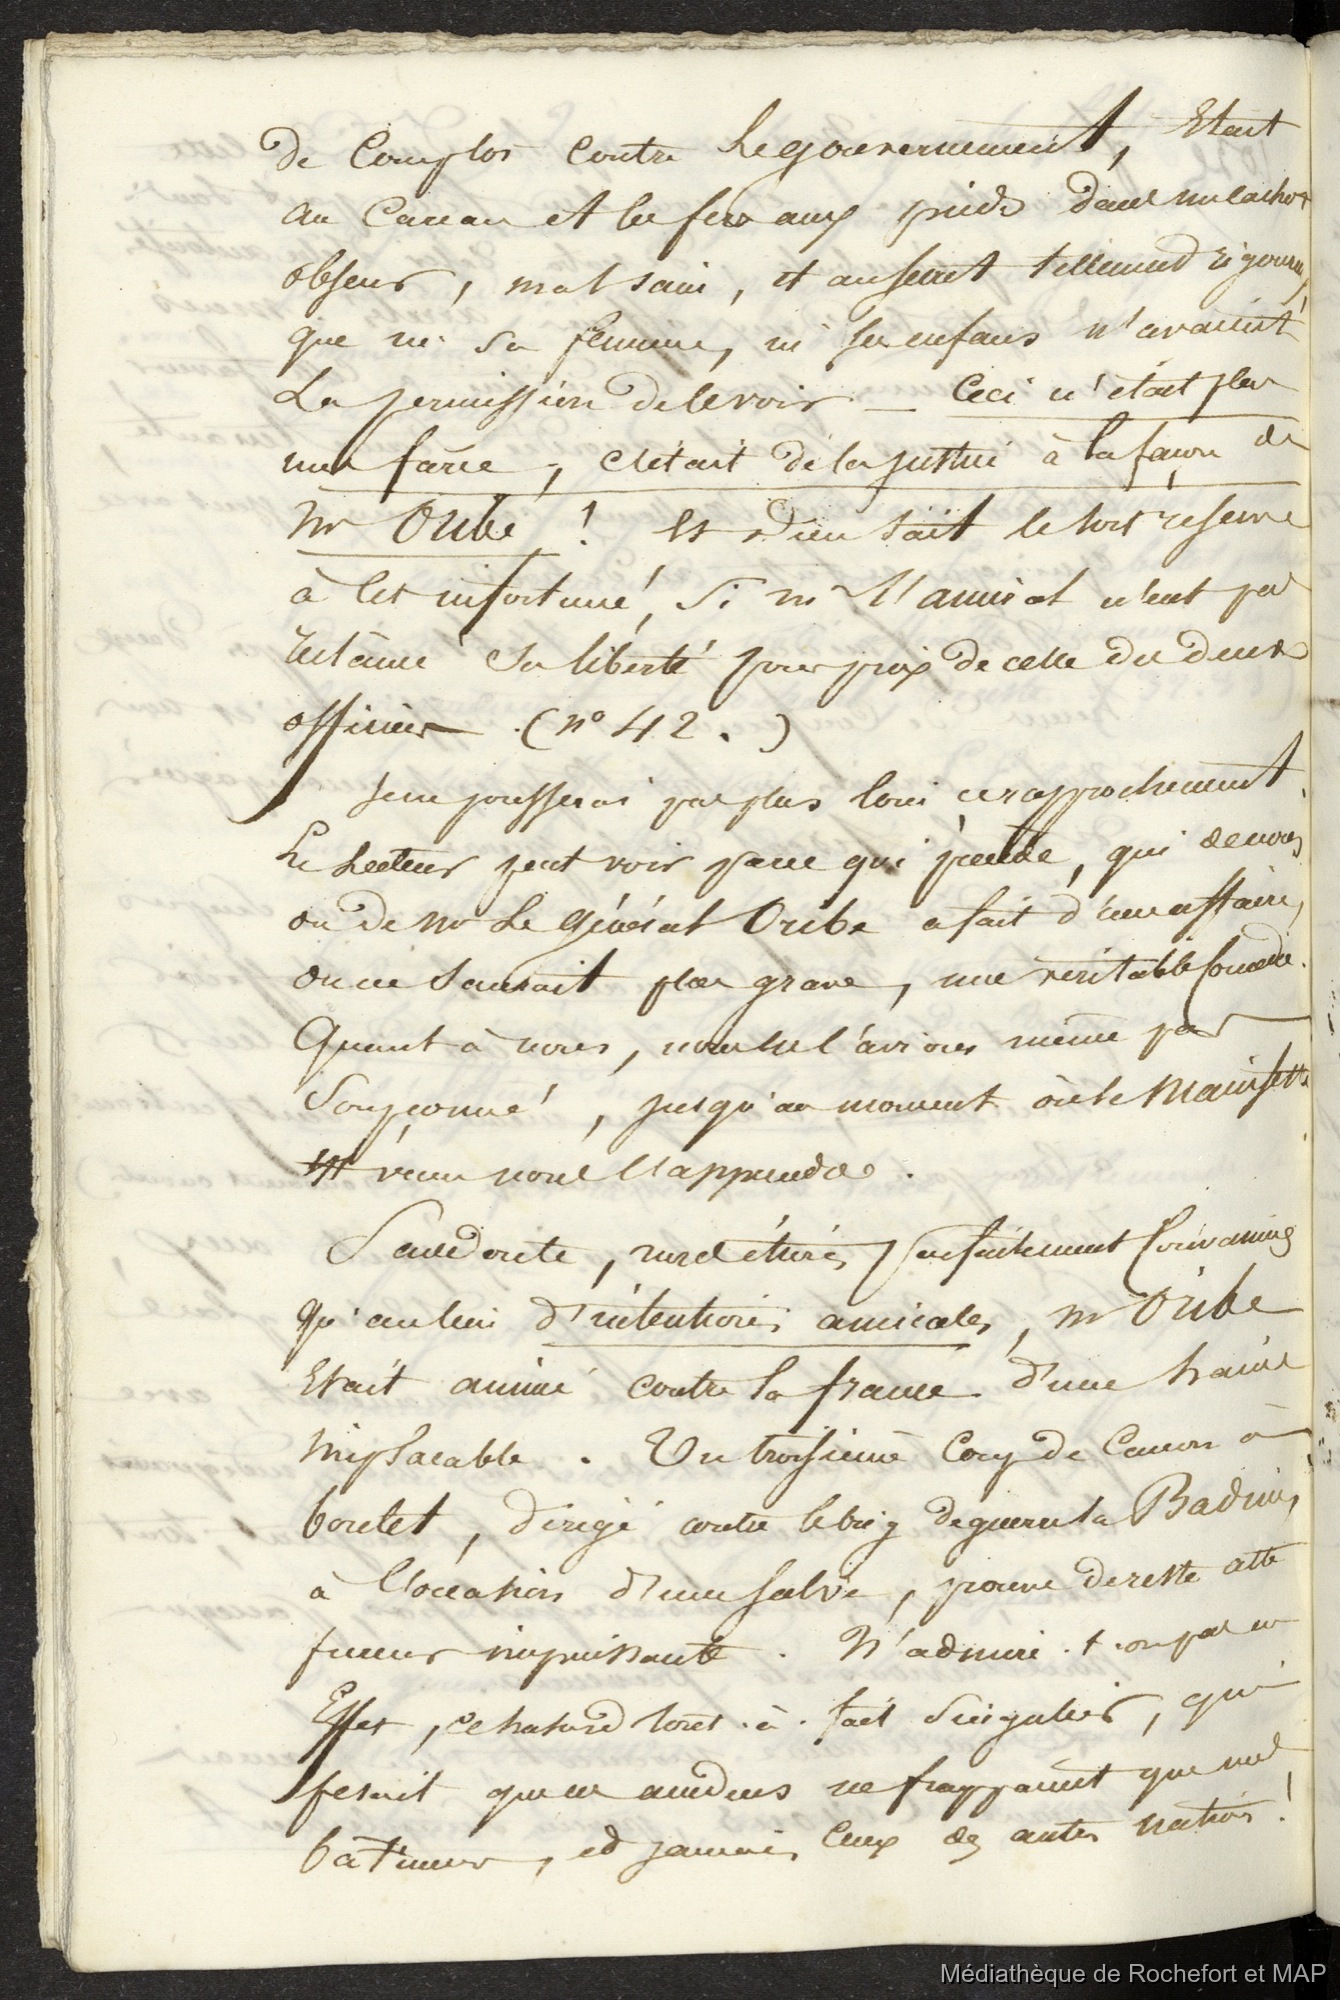 de Complot contre Le gouvernement, Etait
au Carcan et les fers aux pieds dans un cachot
obscur, mal sain, et au secret tellement rigoureux,
que ni sa femme, ni ses enfans n'avaient
La permission de le voir — Ceci n'était plus
une farce, c'était de la justice à la façon de
Mr Oribe ! Et Dieu sait le sort réservé
à cet infortuné, Si mr l'amiral n'eut pas
réclamé sa liberté pour prix de celle des deux
officiers (n° 42.)
Je ne pousserai pas plus loin ce rapprochement.
Le Lecteur peut voir par ce qui précède, qui de nous
ou de Mr Le Général Oribe a fait d'une affaire,
on ne saurait plus grave, une véritable Comédie.
Quant à nous, nous ne l'avions même pas
Soupçonné, jusqu'au moment où le Manifeste
est venu nous l'apprendre.
Sans doute, nous étions parfaitement Convaincus
qu'au lieu d'intentions amicales, Mr Oribe
Etait animé contre la france d'une haine
implacable. Un troisième Coup de Canon à
boulet, dirigé contre le brig de guerre la Badine,
à l'occasion d'une salve, prouve de reste cette
fureur impuissante. N'admire-t-on pas en
Effet, ce hasard tout-à-fait Singulier, qui
fesait que ces accidens ne frappaient que nos
bâtimens, et jamais Ceux des autres nations !
Médiathèque de Rochefort et MAP